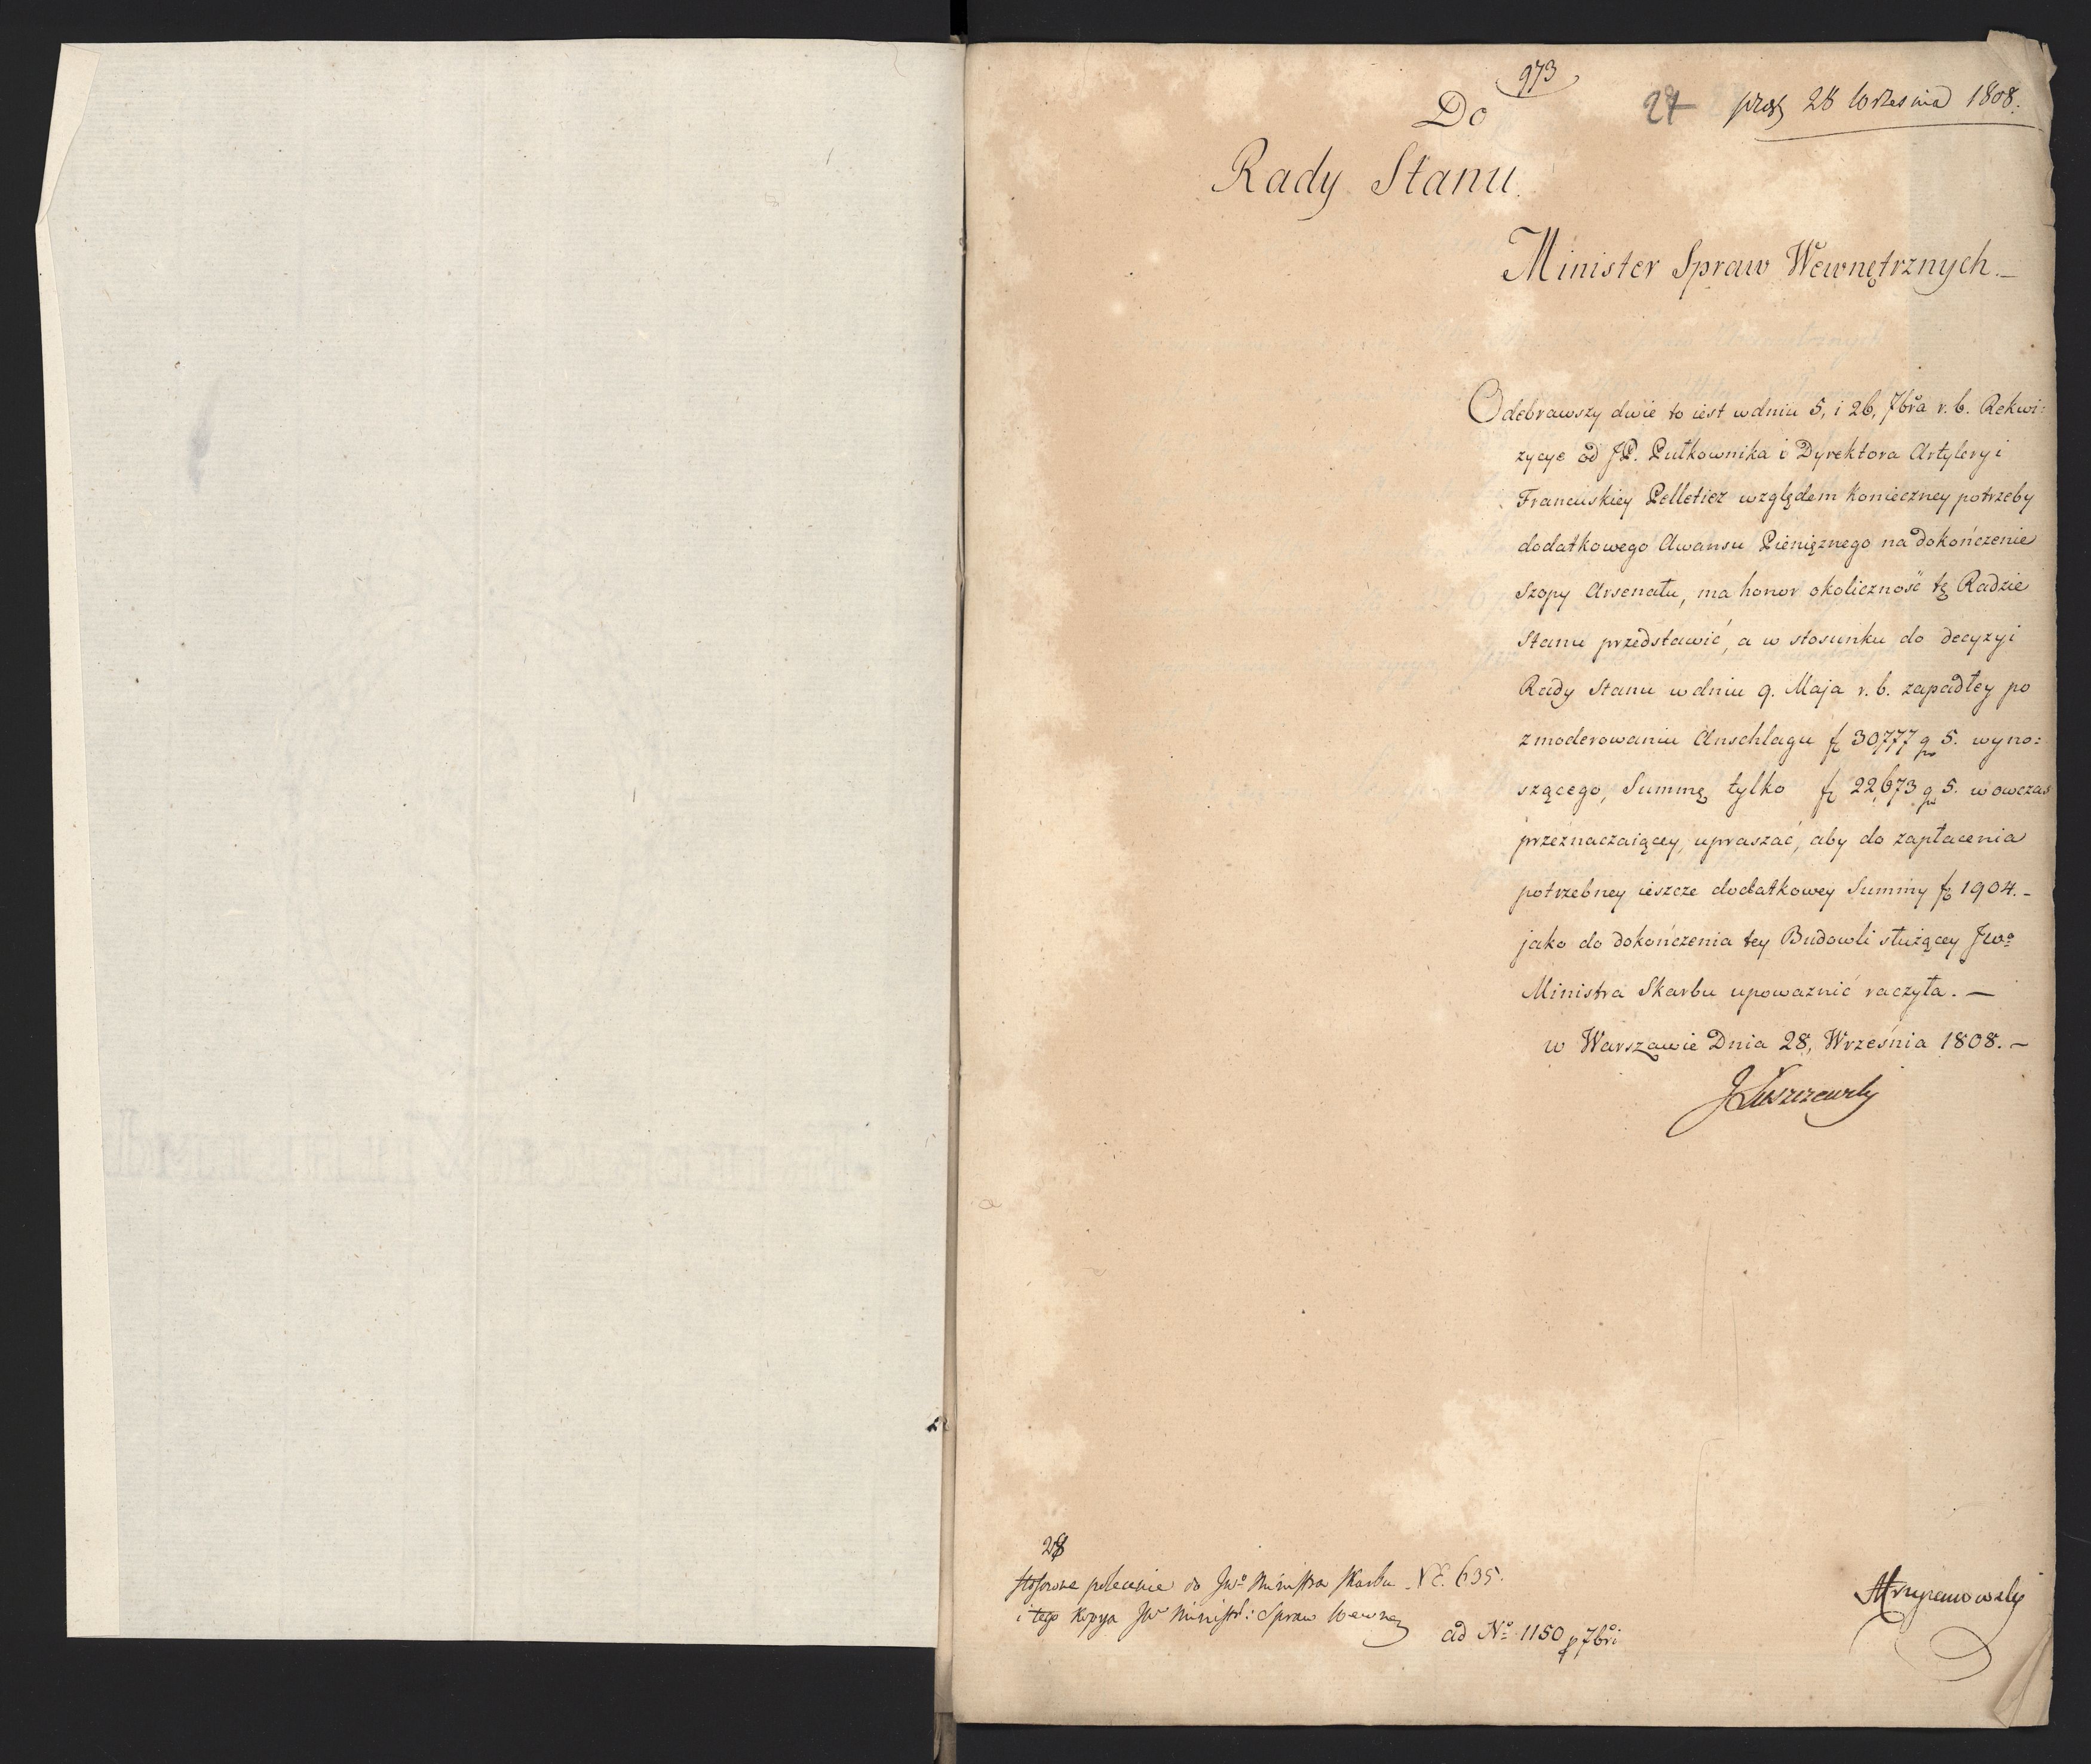 973
27 prez 28 Września 1808.
Do
Rady Stanu.
Minister Spraw Wewnętrznych.—
Odebrawszy dwie to iest w dniu 5, i 26, 7bra r. b. Rekwi:
zycye od JP. Pułkownika i Dyrektora Artyleryi
Francuskiey Pelletier względem Konieczney potrzeby
dodatkowego Awansu Pieniężnego na dokończenie
Szopy Arsenału, ma honor okoliczność tę Radzie
Stanu przedstawić, a w stosunku do decyzyi
Rady Stanu w dniu 9. Maja r. b. zapadłey po
zmoderowaniu Anschlagu f 30777 g 5. wyno:
szącego, Summę tylko f 22,673 g 5. wowczas
przeznaczaiącey, upraszać, aby do zapłacenia
potrzebney ieszcze dodatkowey Summy f 1904.-
jako do dokończenia tey Budowli służącey JWo
Ministra Skarbu upoważnić raczyła. —
w Warszawie Dnia 28, Września 1808. —
JŁuszczewski
28
stosowne polecenie do JWo Ministra Skarbu NE. 635.
i tego Kopya JW Ministr: Spraw Wewnę
ad No 1150 p 7bri